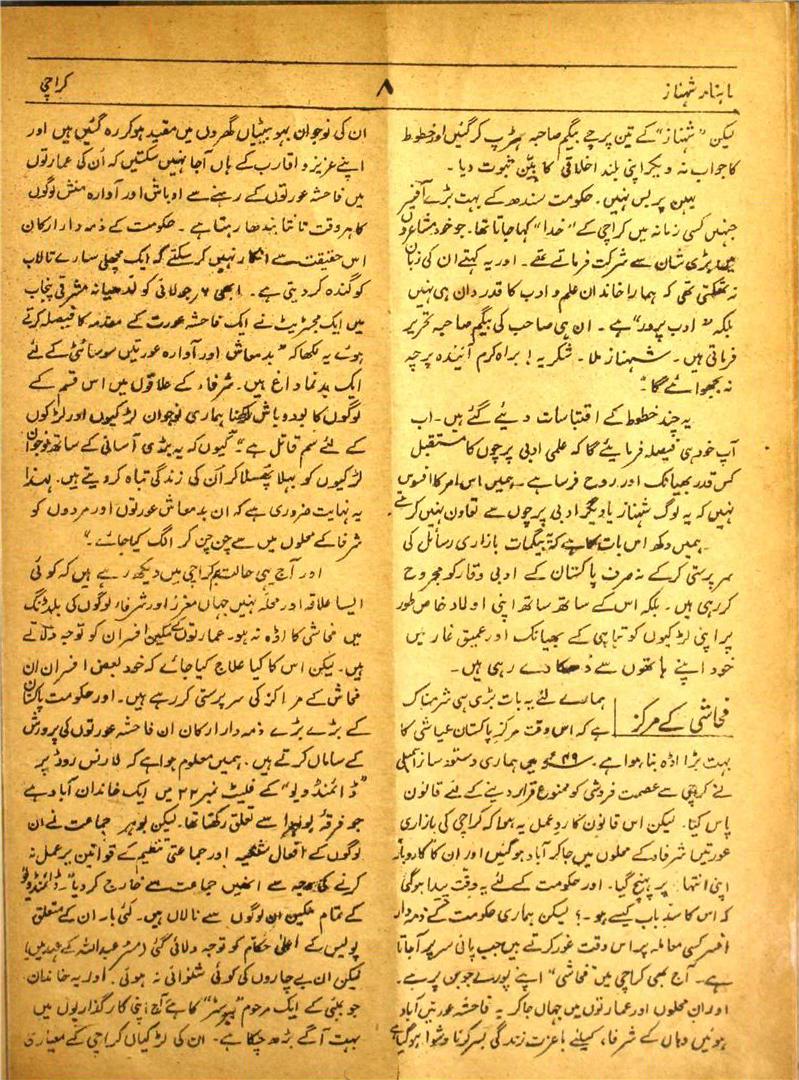 ماہنامہ شہناز
۸
کراچی
لیکن "شہناز" کے تین پرچے بیگم صاحبہ ہڑپ کر گئیں اور خطوط
کا جواب نہ دیکر اپنی بلند اخلاقی کا بیّن ثبوت دیا۔
یہیں پر بس نہیں۔ حکومت سندھ کے بہت بڑے آفیسر
جنہیں کسی زمانہ میں کراچی کے "خدا" کہا جاتا تھا۔ جو خود مشاعروں
میں بڑی شان سے شرکت فرماتے تھے۔ اور یہ کہتے ان کی زبان
نہ تھکتی تھی کہ ہمارا خاندان علم و ادب کا قدردان ہی نہیں
بلکہ "ادب پرور" ہے۔ ان ہی صاحب کی بیگم صاحبہ تحریر
فرماتی ہیں۔ شہناز ملا۔ شکریہ! براہ کرم آئیندہ پرچہ
نہ بھجوائیے گا"
یہ چند خطوط کے اقتباسات دیئے گئے ہیں۔ اب
آپ خود ہی فیصلہ فرمایئے گا کہ علمی ادبی پرچوں کا مستقبل
کس قدر بھیانک اور روح فرسا ہے۔ ہمیں اس امر کا افسوس
نہیں کہ یہ لوگ شہناز یا دیگر ادبی پرچوں سے تعاون نہیں کرتے
ہمیں دکھ اس بات کا ہے کہ بیگمات بازاری رسائل کی
سرپرستی کر کے نہ صرف پاکستان کے ادبی وقار کو مجروح
کر رہی ہیں۔ بلکہ اس کے ساتھ ساتھ اپنی اولاد خاص طور
پر اپنی لڑکیوں کو تباہی کے بھیانک اور عمیق غار میں
خود اپنے ہاتھوں سے دھکا دے رہی ہیں۔
فحاشی کے مرکز
ہمارے لئے یہ بات بڑی ہی شرمناک
ہے کہ اس وقت مرکز پاکستان عیاشی کا
بہت بڑا اڈہ بنا ہوا ہے۔ ۴۹ء میں ہماری دستور ساز اسمبلی
نے کراچی سے عصمت فروشی کو ممنوع قرار دینے کے لئے قانون
پاس کیا۔ لیکن اس قانون کا ردِ عمل یہ ہوا کہ کراچی کی بازاری
عورتیں شرفاء کے محلوں میں جا کر آباد ہو گئیں اور ان کا کاروبار
اپنی انتہا پر پہنچ گیا۔ اور حکومت کے لئے یہ دقّت پیدا ہو گئی
کہ اس کا سدِّباب کیسے ہو۔؟ لیکن ہماری حکومت کے ذمہ دار
افسر کسی معاملہ پر اس وقت غور کرتے ہیں جب پانی سر پر آ جاتا
ہے۔ آج بھی کراچی میں "فحاشی" اپنے پورے جوبن پر ہے۔
اور ان محلوں اور عمارتوں میں جہاں جا کر یہ فاحشہ عورتیں آباد
ہوئیں وہاں کے شرفاء کیلئے باعزت زندگی بسر کرنا دشوار ہو گیا ہے
ان کی نوجوان بہو بیٹیاں گھروں میں مقید ہو کر رہ گئیں ہیں اور
اپنے عزیز و اقارب کے ہاں آ جا نہیں سکتیں کہ اُن کی عمارتوں
میں فاحشہ عورتوں کے رہنے سے اوباش اور آوارہ منش لوگوں
کا ہر وقت تانتا بندھا رہتا ہے۔ حکومت کے ذمہ دار ارکان
اس حقیقت سے انکار نہیں کر سکتے کہ ایک مچھلی سارے تالاب
کو گندہ کر دیتی ہے۔ ابھی ۶ر جولائی کو لدھیانہ مشرقی پنجاب
میں ایک مجسٹریٹ نے ایک فاحشہ عورت کے مقدمہ کا فیصلہ کرتے
ہوئے یہ لکھا کہ "بدمعاش اور آوارہ عورتیں سوسائٹی کے لئے
ایک بدنما داغ ہیں۔ شرفاء کے علاقوں میں اس قسم کے
لوگوں کا بود و باش رکھنا ہماری نوجوان لڑکیوں اور لڑکوں
کے لئے سم قاتل ہے۔ کیوں کہ یہ بڑی آسانی کے ساتھ نوجوان
لڑکیوں کو بہلا پھسلا کر اُن کی زندگی تباہ کر دیتے ہیں۔ لہٰذا
یہ نہایت ضروری ہے کہ ان بدمعاش عورتوں اور مردوں کو
شرفا کے محلوں میں سے چن چن کر الگ کیا جائے۔"
اور آج یہی حالت ہم کراچی میں دیکھ رہے ہیں کہ کوئی
ایسا علاقہ اور محلہ نہیں جہاں معزز اور شرفاء لوگوں کی بلڈنگ
میں فحاشی کا اڈہ نہ ہو۔ عمارتوں کے مکین افسران کو توجہ دلاتے
ہیں۔ لیکن اس کا کیا علاج کیا جائے کہ خود بعض افسران ان
فحاش کے مراکز کی سرپرستی کر رہے ہیں۔ اور حکومت پاکستان
کے بڑے بڑے ذمہ دار ارکان ان فاحشہ عورتوں کی پرورش
کے ساماں کرتے ہیں۔ ہمیں معلوم ہوا ہے کہ لارنس روڈ پر
"ڈائمنڈ ویو" کے فلیٹ نمبر ۲۲ میں ایک خاندان آباد ہے
جو فرقہ بوہرا سے تعلق رکھتا تھا۔ لیکن بوہر جماعت نے ان
لوگوں کے افعال شنیعہ اور جماعتی تنظیم کے قوانین پر عمل نہ
کرنے کی وجہ سے انھیں جماعت سے خارج کر دیا۔ ڈائمنڈ ویو
کے تمام مکین ان لوگوں سے نالاں ہیں۔ کئی بار ان کے متعلق
پولیس کے اعلیٰ حکام کو توجہ دلائی گئی (مسٹر عبداللہ کے عہد میں)
لیکن ان بے چاروں کی کوئی شنوائی نہ ہوئی۔ اور یہ خاندان
جو بمبئی کے ایک مرحوم "بیرسٹر" کا ہے آج اپنی کارگذاریوں میں
بہت آگے بڑھ چکا ہے۔ ان کی لڑکیاں کراچی کے معیاری